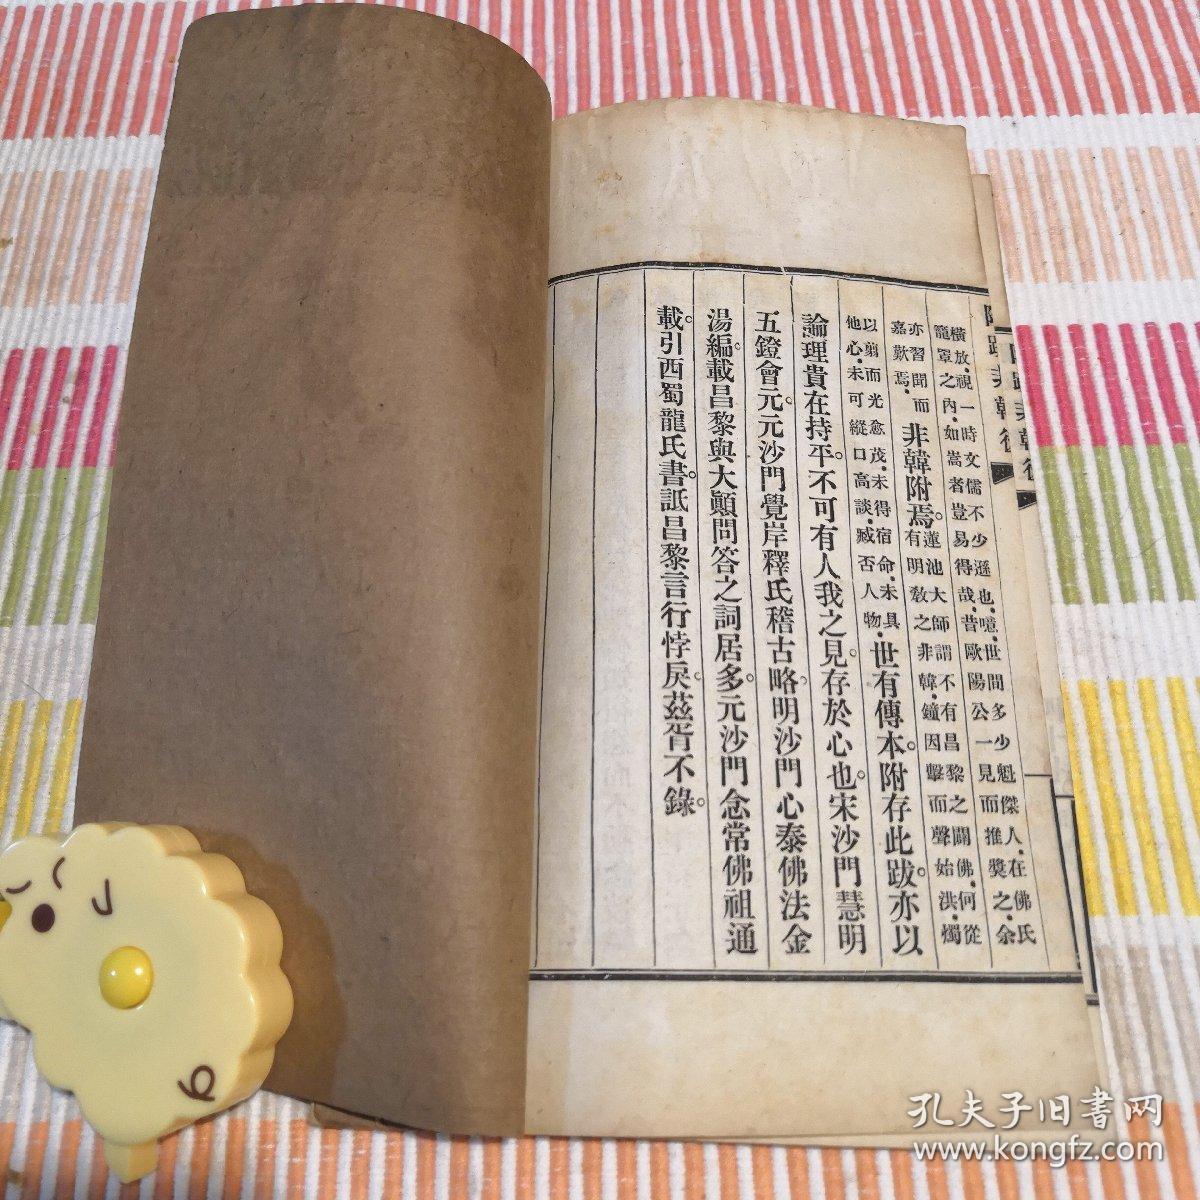 跋非韓後
橫放。視一時文儒不少遜也。噫。世間多少魁傑人。在佛氏
籠罩之內。如嵩者豈易得哉。昔歐陽公一見而推獎之。余
亦習聞而
嘉歎焉。
非韓附焉。
蓮池大師謂不有昌黎之闢佛。何從
有明敎之非韓。鐘因擊而聲始洪。燭
以剪而光愈茂。未得宿命。未具
他心。未可縱口高談。臧否人物。
世有傳本。附存此跋。亦以
論理貴在持平。不可有人我之見。存於心也。宋沙門慧明
五鐙會元。元沙門覺岸釋氏稽古略。明沙門心泰佛法金
湯編。載昌黎與大顚問答之詞居多。元沙門念常佛祖通
載。引西蜀龍氏書。詆昌黎言行悖戾。茲胥不錄。
孔夫子旧書网
www.kongfz.com